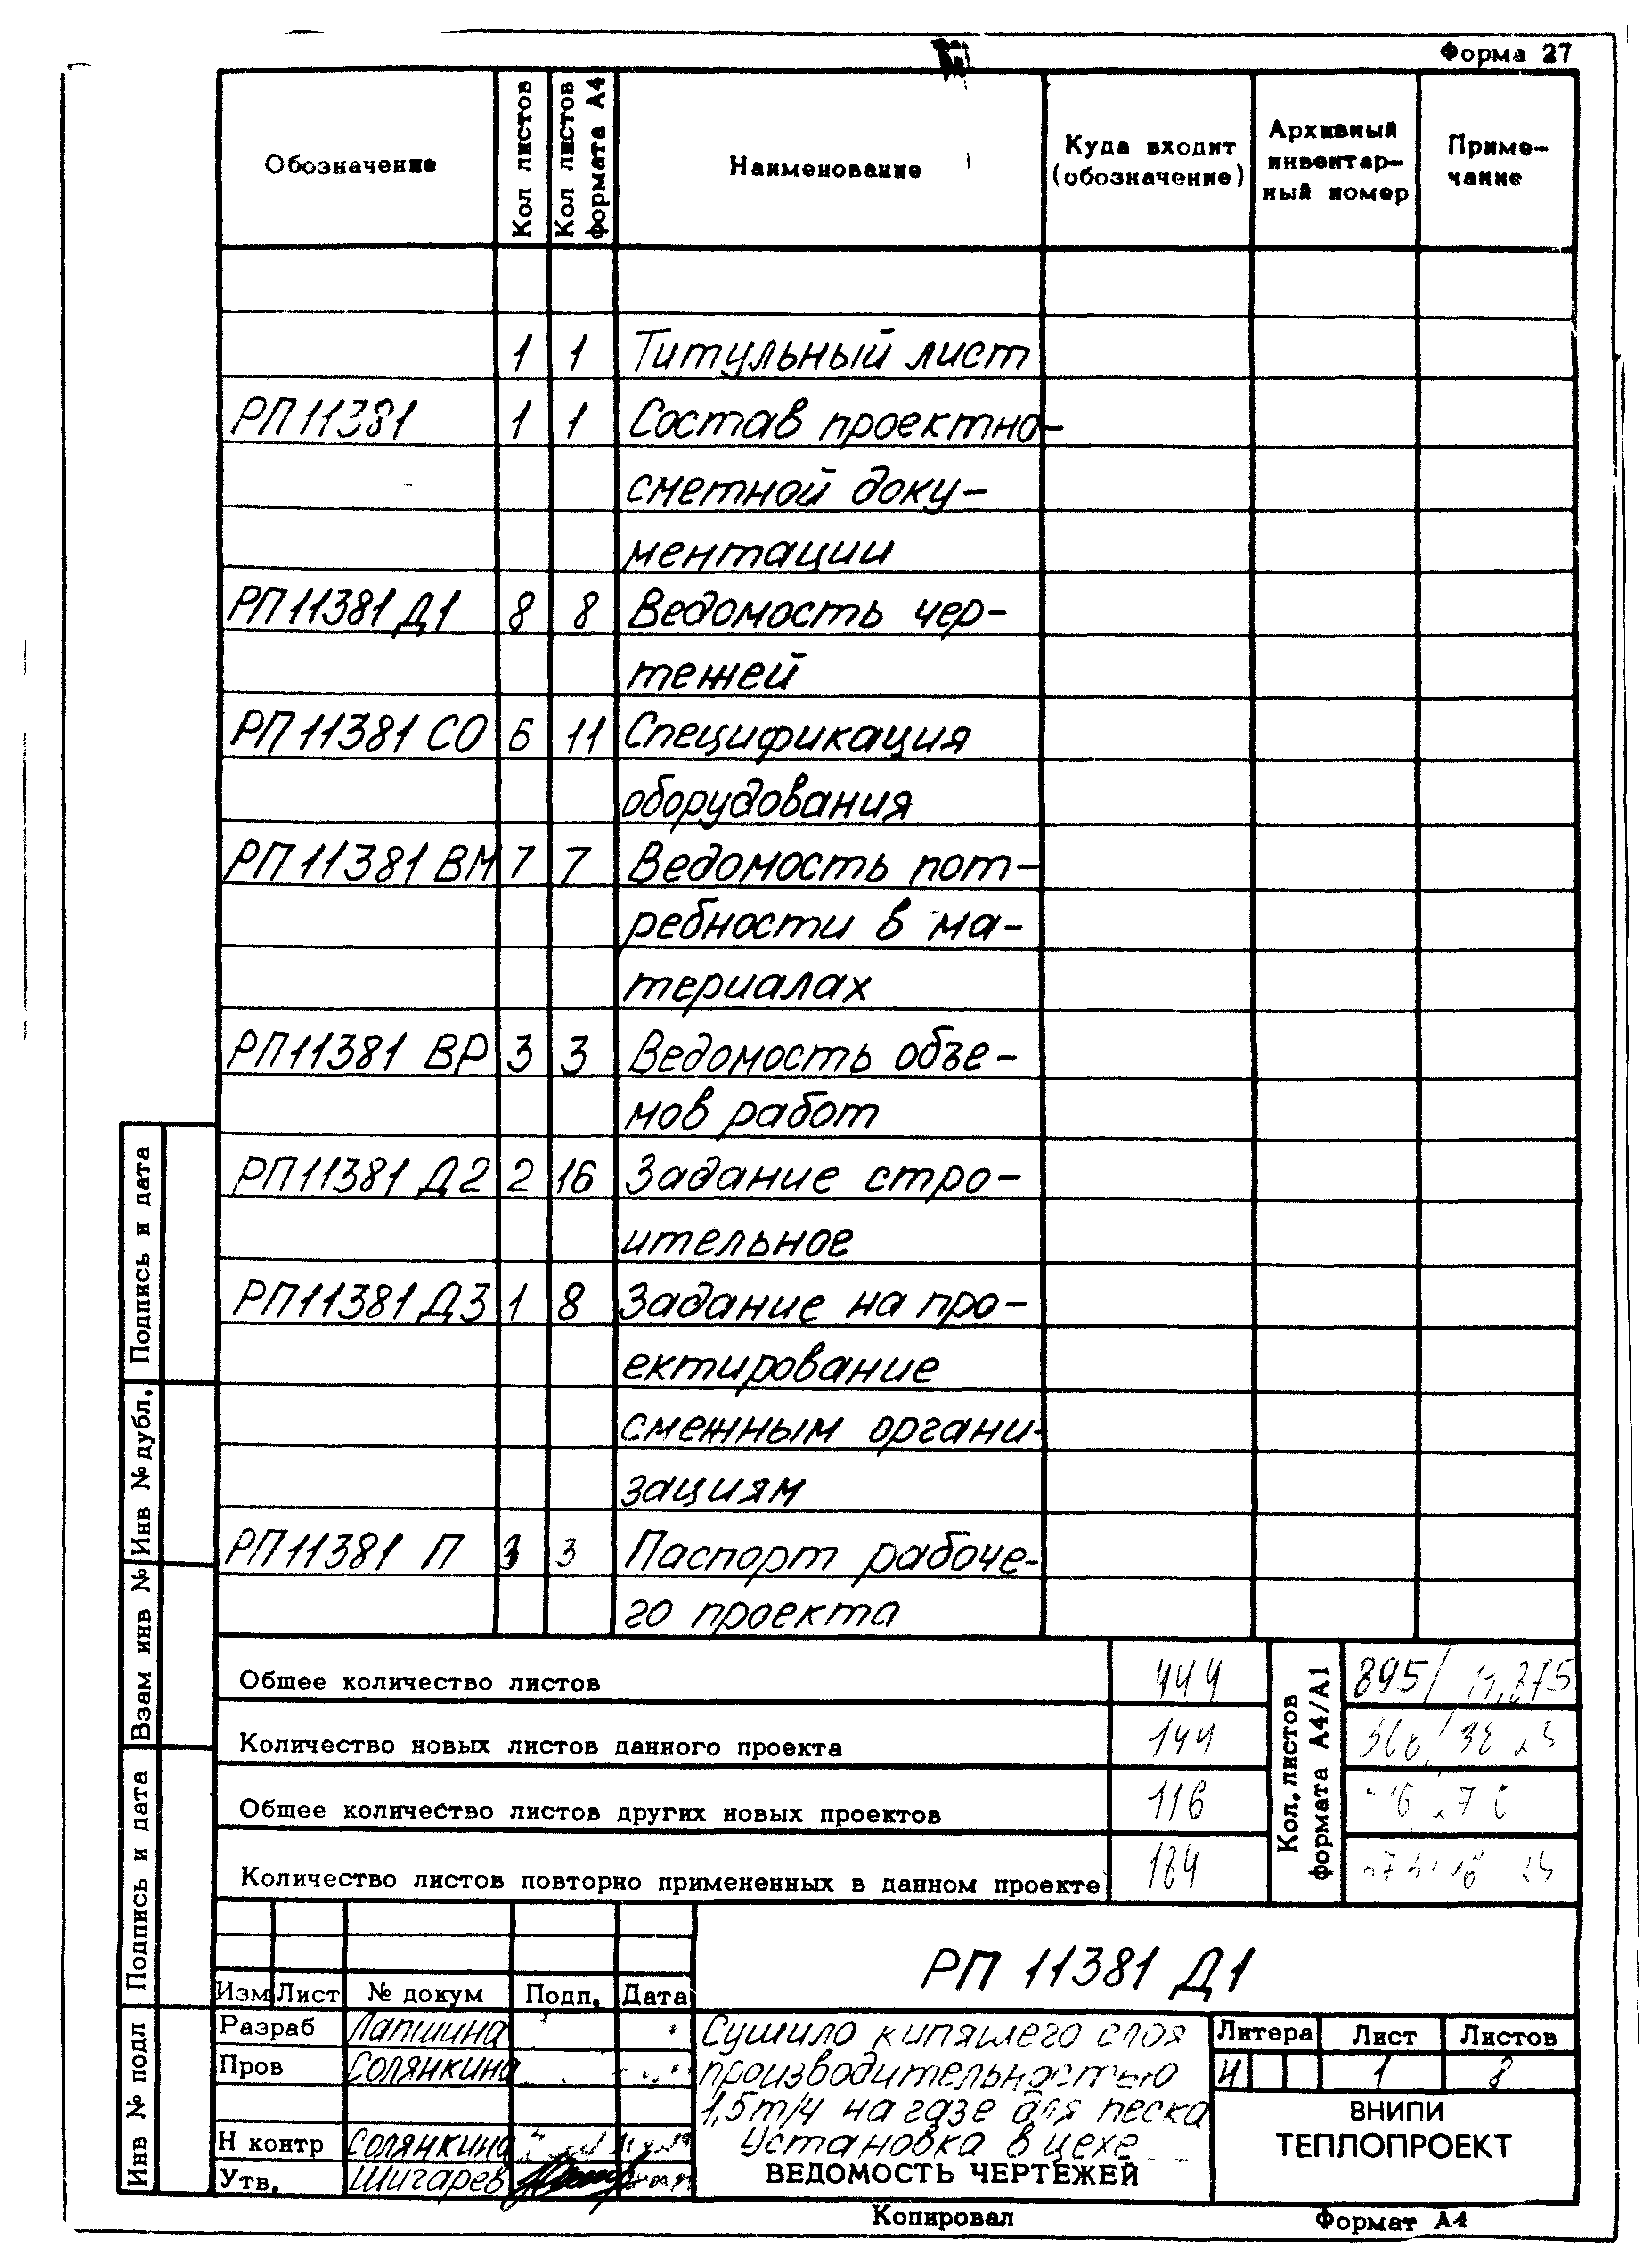 Форма 27
Обозначение
Кол листов
Кол листов формата А4
Наименование
Куда входит (обозначение)
Архивный инвентар-ный номер
Приме-чание
1 1 Титульный лист
РП 11381 1 1 Состав проектно-
сметной доку-
ментации
РП 11381 Д1 8 8 Ведомость чер-
тежей
РП 11381 СО 6 11 Спецификация
оборудования
РП 11381 ВМ 7 7 Ведомость пот-
ребности в ма-
териалах
РП 11381 ВР 3 3 Ведомость объе-
мов работ
РП 11381 Д2 2 16 Задание стро-
ительное
РП 11381 Д3 1 8 Задание на про-
ектирование
смежным органи-
зациям
РП 11381 П 3 3 Паспорт рабоче-
го проекта
Общее количество листов 444
Количество новых листов данного проекта 144
Общее количество листов других новых проектов 116
Количество листов повторно примененных в данном проекте 184
Кол. листов формата А4/А1
895/
РП 11381 Д1
Изм Лист № докум Подп. Дата
Разраб Лапшина
Пров Солянкина
Н контр Солянкина
Утв. Шигарев
Сушило кипящего слоя
производительностью
1,5т/ч на газе для песка
Установка в цехе
ВЕДОМОСТЬ ЧЕРТЕЖЕЙ
Литера Лист Листов
И 1 8
ВНИПИ
ТЕПЛОПРОЕКТ
Копировал
Формат А4
Подпись и дата
Инв № дубл.
Взам инв №
Подпись и дата
Инв № подл